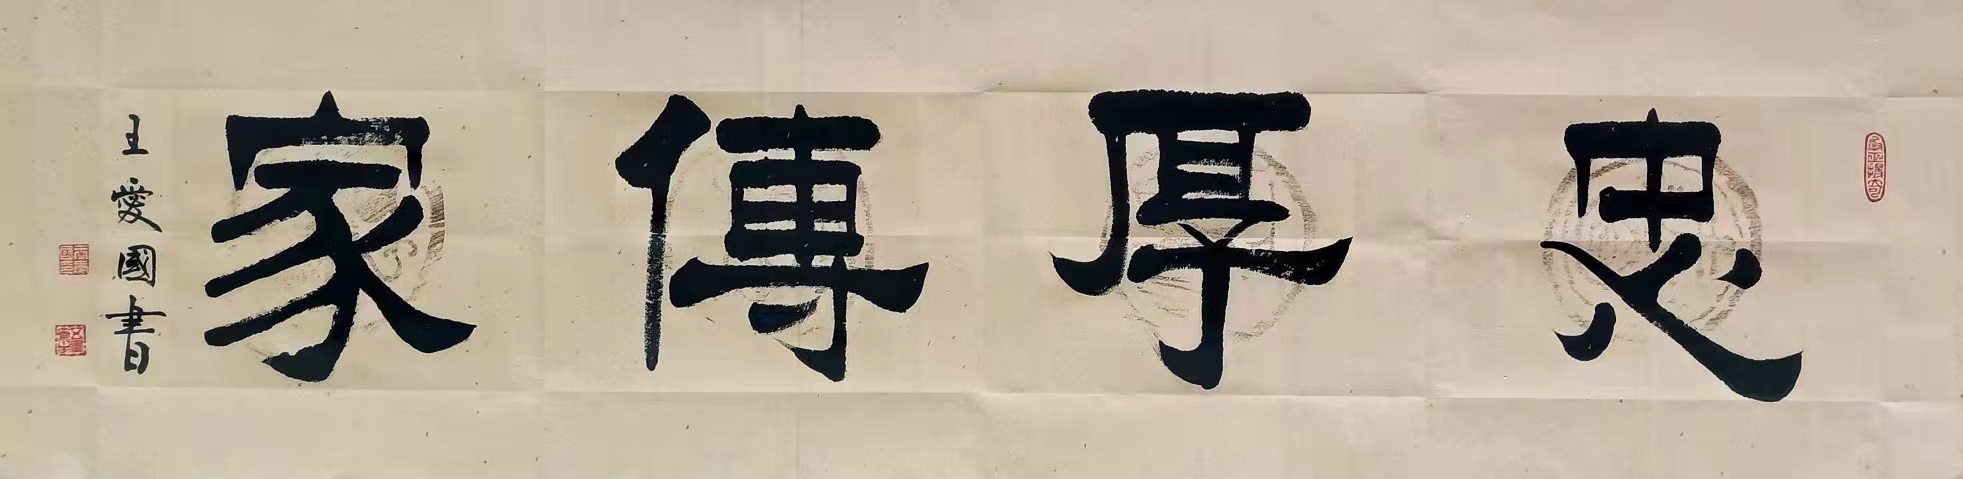 忠厚傳家
王愛國書